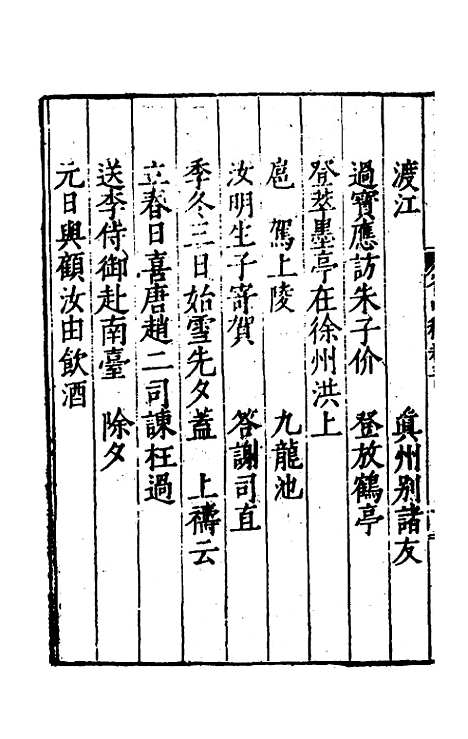 渡江　真州别諸友
過寶應訪朱子价　登放鶴亭
登翠墨亭在徐州洪上
扈　駕上陵　九龍池
汝明生子寄賀　答謝司直
季冬三日始雪先夕蓋　上禱云
立春日喜唐趙二司諫枉過
送李侍御赴南臺　除夕
元日與顧汝由飲酒